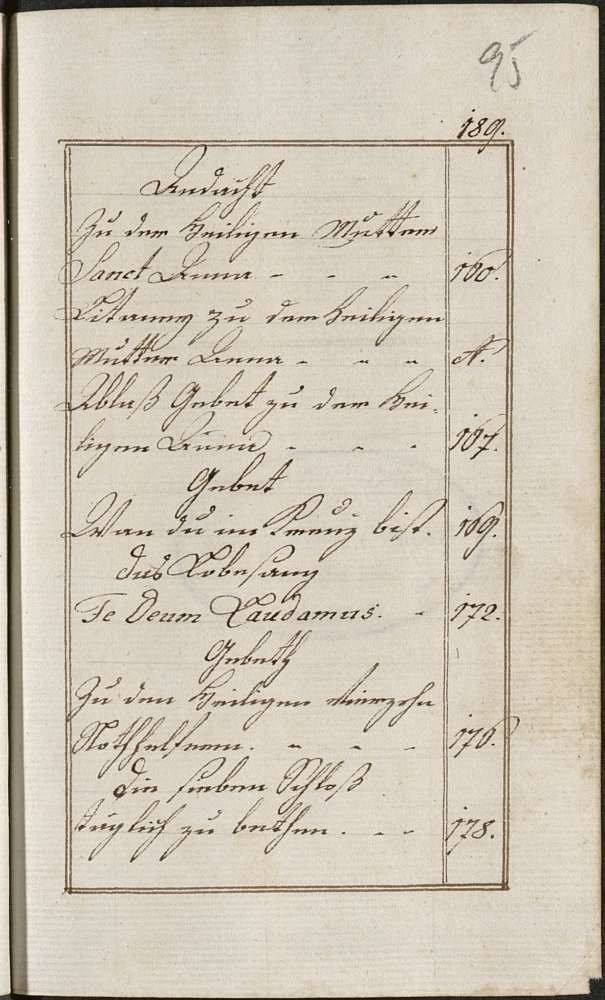 95
189.
Andacht
Zu der Heiligen Mutter
Sanct Anna - - - 160.
Litaney zu der Heiligen
Mutter Anna - - -
Ablaß Gebet zu der Hei-
ligen Anna - - - 167.
Gebet
Wan du im Kreuz bist. 169.
das Lobesang
Te Deum Laudamus. - 172.
Gebeth
Zu den Heiligen Vierzehn
Nothhelfern. - - - 176.
die sieben Schloß
täglich zu bethen. - - 178.